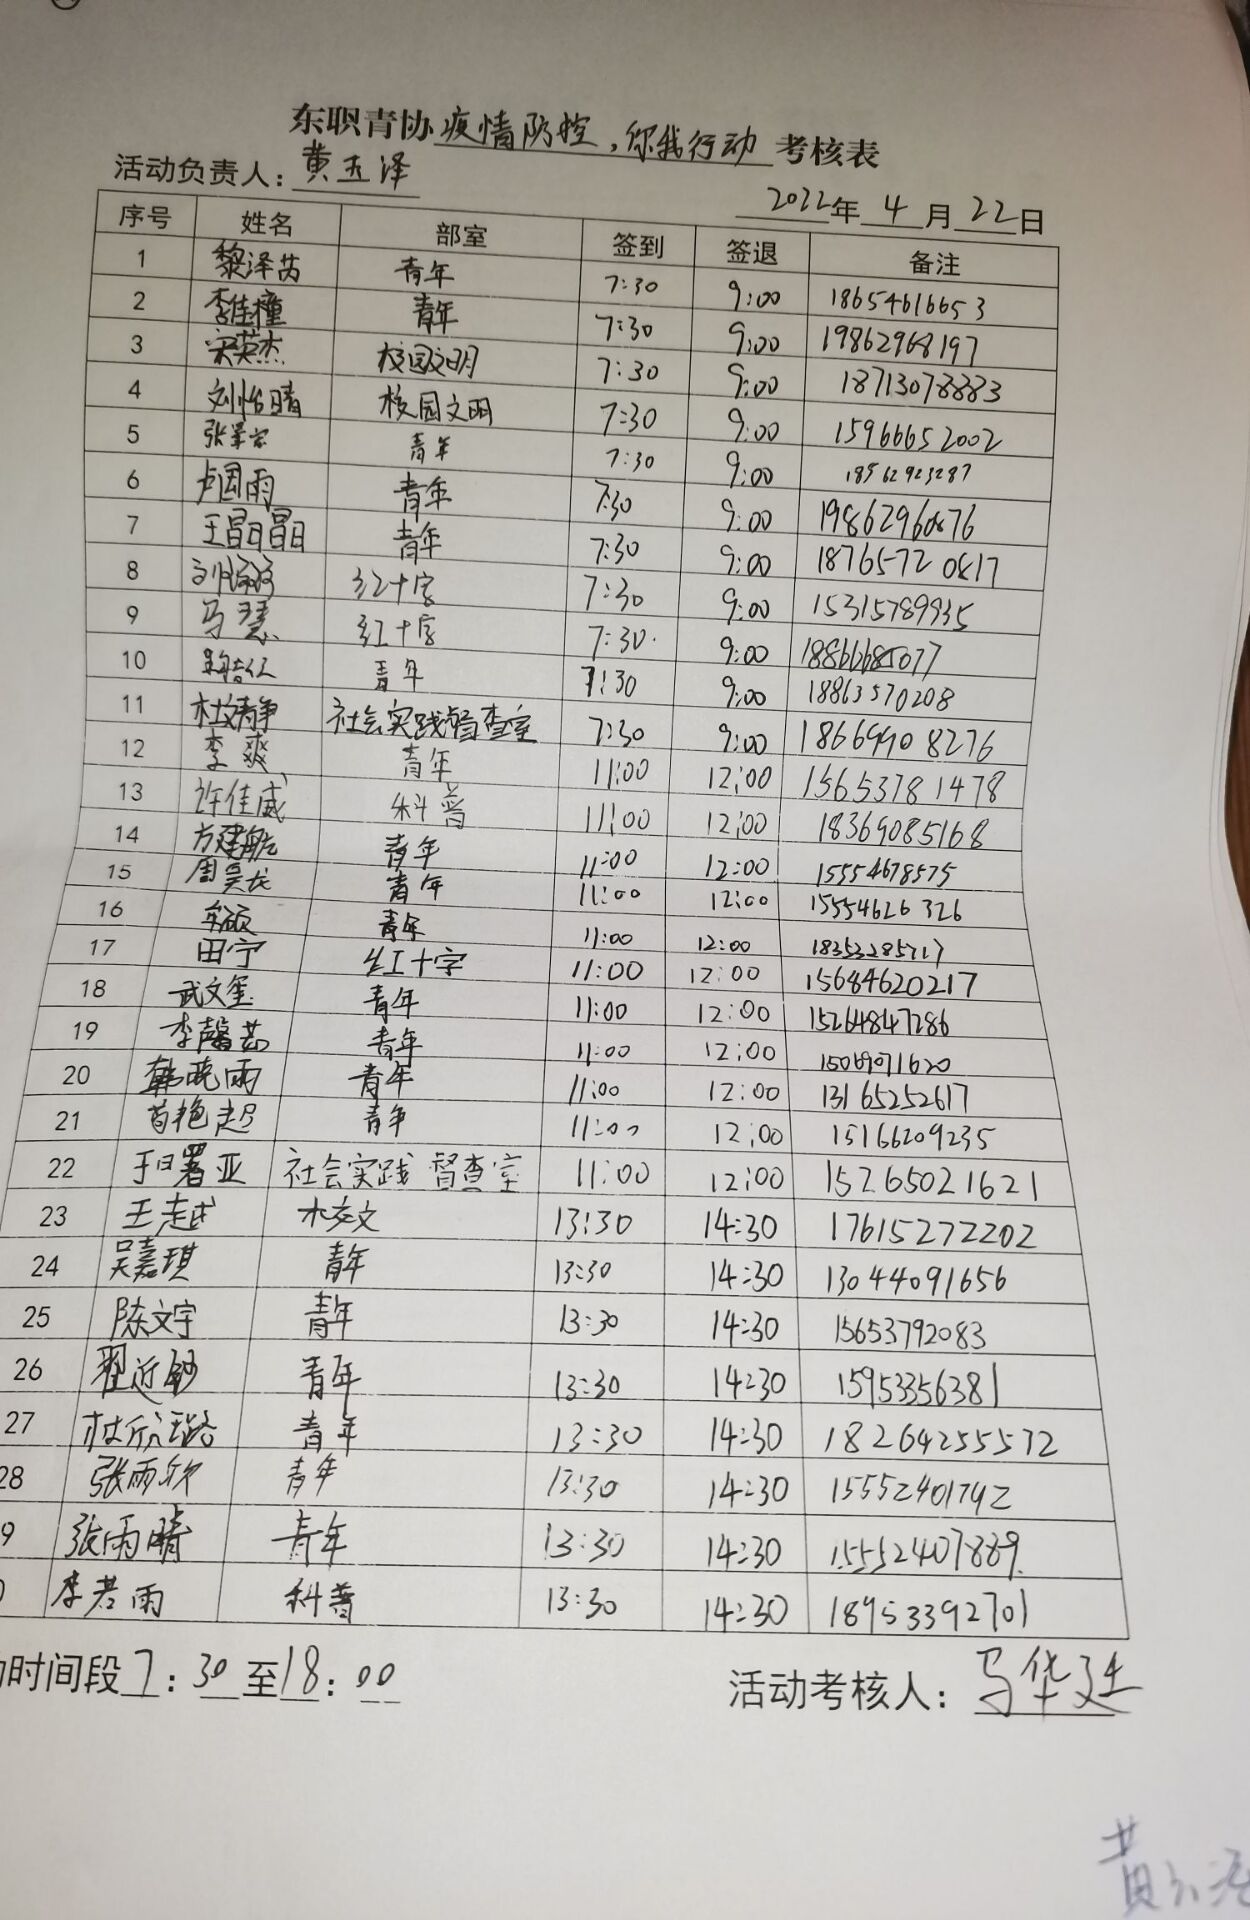 东职青协疫情防控,你我行动考核表
活动负责人:黄玉泽
2022年4月22日
序号 姓名 部室 签到 签退 备注
1 黎泽芮 青年 7:30 9:00 18654616653
2 李佳橦 青年 7:30 9:00 19862968197
3 宋英杰 校园文明 7:30 9:00 18713078883
4 刘怡晴 校园文明 7:30 9:00 15966652002
5 青年 7:30 9:00 18562923287
6 卢国雨 青年 7:30 9:00 19862960876
7 王晶晶 青年 7:30 9:00 18765720817
8 红十字 7:30 9:00 15315789935
9 马慧 红十字 7:30 9:00
10 青年 7:30 9:00 18863570208
11 杜文静 社会实践督查室 7:30 9:00 18669908276
12 李爽 青年 11:00 12:00 15653781478
13 许佳威 科普 11:00 12:00 18369085168
14 方建航 青年 11:00 12:00 15554678575
15 周昊龙 青年 11:00 12:00 15554626326
16 青年 11:00 12:00 18353285717
17 田宁 红十字 11:00 12:00 15684620217
18 武文玺 青年 11:00 12:00 15264847286
19 李馨茹 青年 11:00 12:00 15069071620
20 韩晓雨 青年 11:00 12:00 13165252617
21 苗艳超 青年 11:00 12:00 15166209235
22 于曙亚 社会实践督查室 11:00 12:00 15265021621
23 王越 水交文 13:30 14:30 17615272202
24 吴嘉琪 青年 13:30 14:30 13044091656
25 陈文宇 青年 13:30 14:30 15653792083
26 翟近 青年 13:30 14:30 15953356381
27 杜欣璐 青年 13:30 14:30 18264255572
28 张雨欣 青年 13:30 14:30 15552401742
9 张雨晴 青年 13:30 14:30 15552407889
李若雨 科普 13:30 14:30 18953392701
时间段7:30至18:00
活动考核人:马华廷
黄玉泽